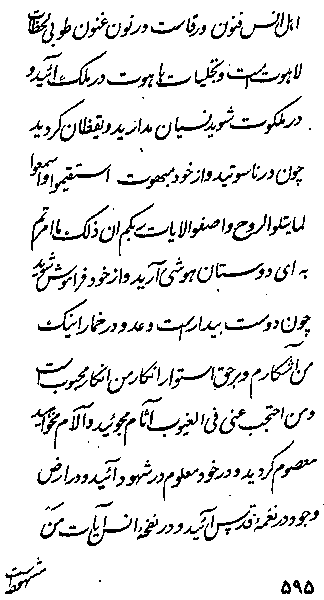 اهل انس فنون ورقاست در نون غنون طوبی لحظات
لاهوتست و تجلیات هاهوت در ملک آئید و
در ملکوت شوید نسیان مدارید و یقظان گردید
چون در ناسوتید و از خود مبهوت استقیموا و اسمعوا
لما یتلو الروح و اصغوا لآیات ربکم ان ذلک ما امرتم
به ای دوستان هوشی آرید و از خود فراموش شوید
چون دوست بیدارست و عدو در خمار اینک
من آشکارم و بر حق استوار انکار من انکار محبوبست
و من احتجب عنی فی الغیوب آثام مجوئید و آلام مخواهید
معصوم گردید و در خود معلوم در شهود آئید و در ارض
وجود در نغمهٔ قدس آئید و در نفحهٔ انس آیات من
مشهودست
۵۹۵